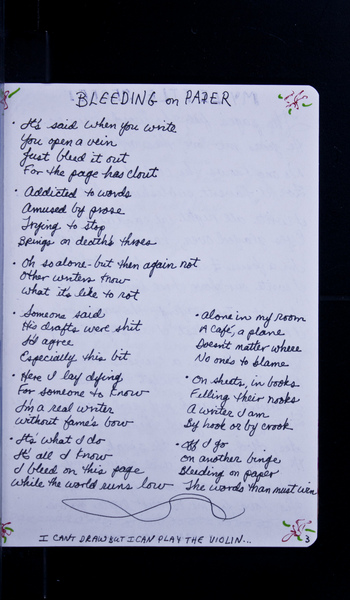 BLEEDING on PAPER
• It's said when you write
You open a vein
Just bleed it out
For the page has clout
• Addicted to words
Amused by prose
Trying to stop
Brings on death's throes
• Oh so alone - but then again not
Other writers know
What it's like to rot
• Someone said
His drafts were shit
I'd agree
Especially this bit
• Here I lay dying
For someone to know
I'm a real writer
Without fame's bow
• It's what I do
It's all I know
I bleed on this page
While the world runs low
• alone in my room
A café, a plane
Doesn't matter where
No one's to blame
• On sheets, in books
Filling their nooks
A writer I am
By hook or by crook
• Off I go
On another binge
Bleeding on paper
The words than must
I CAN'T DRAW BUT I CAN PLAY THE VIOLIN...
3